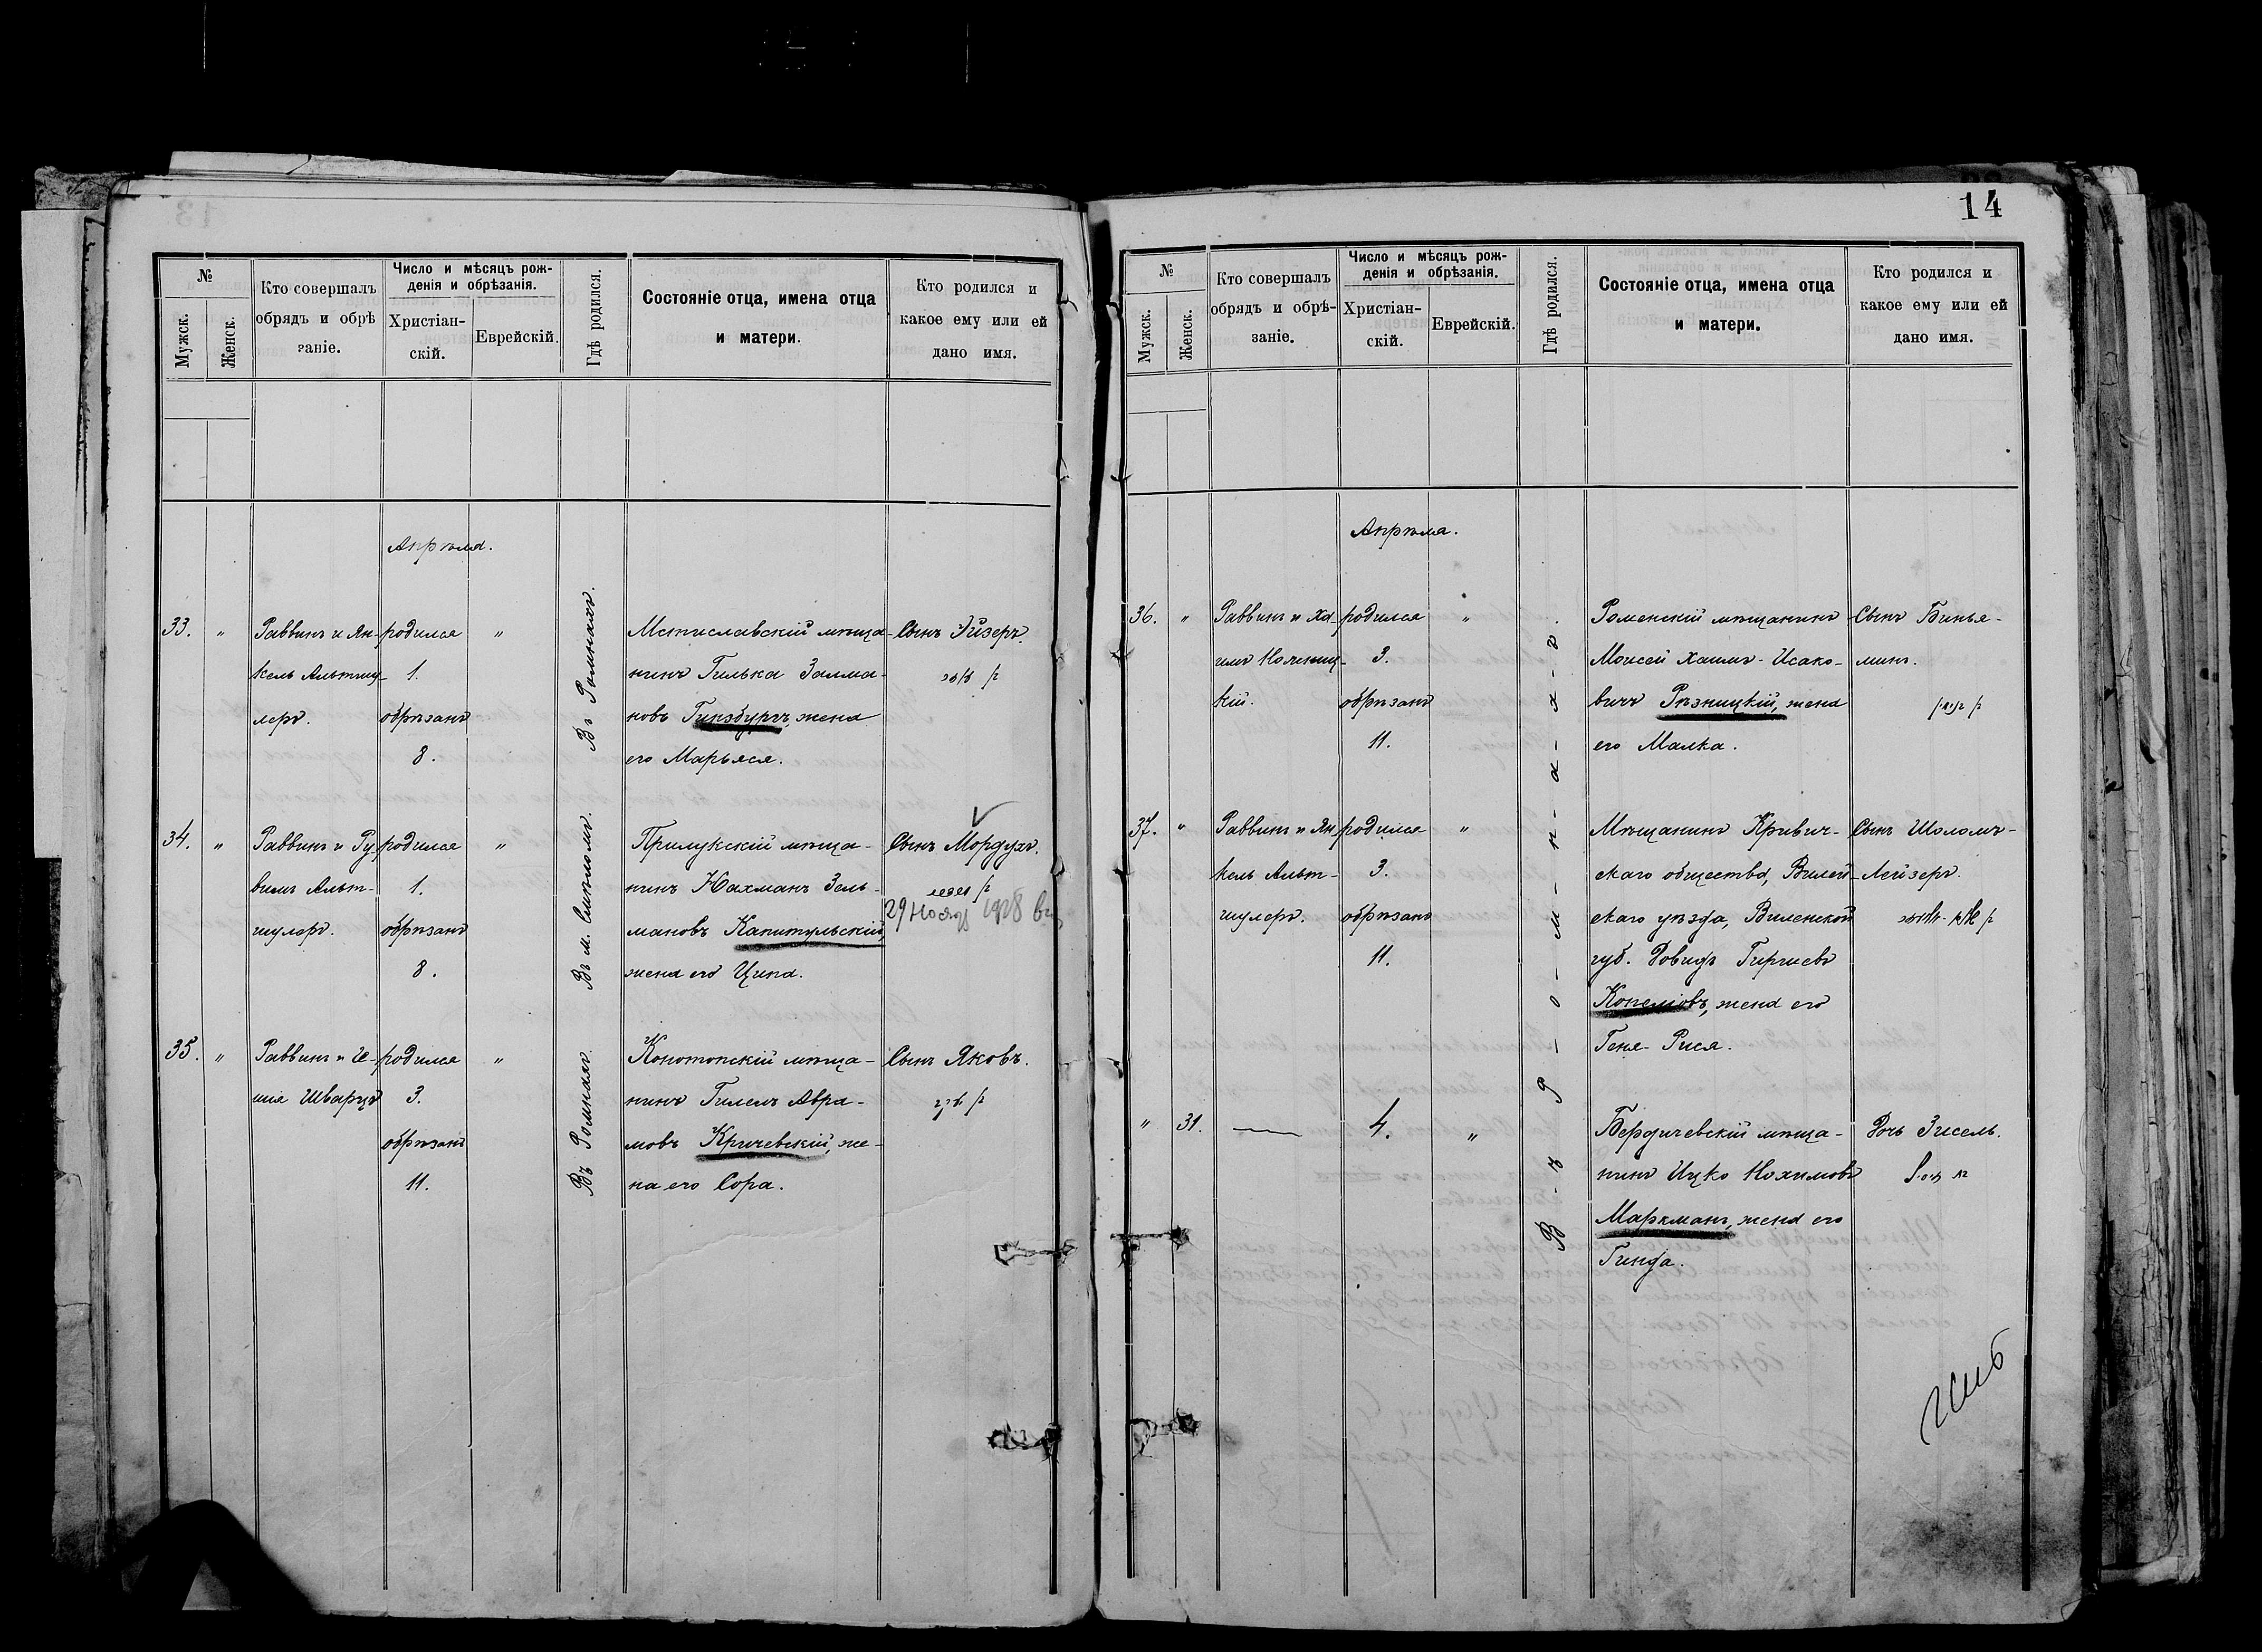 №
Мужск.
Женск.
Кто совершалъ
обрядъ и обрѣ
заніе.
Число и мѣсяцъ рож-
денія и обрѣзанія.
Христіан-
скій.
Еврейскій.
Гдѣ родился.
Состояніе отца, имена отца
и матери.
Кто родился и
какое ему или ей
дано имя.
Апрѣля.
33.
"
Раввинъ и Ян-
кель Альтшу-
леръ.
родился
1.
обрѣзанъ
8.
"
Въ Ромнахъ.
Мстиславскій мѣща-
нинъ Гилька Залма-
новъ Гинзбургъ, жена
его Марьяся.
Сынъ Эйзеръ.
34.
"
Раввинъ и Ру
вимъ Альт-
шулеръ.
родился
1.
обрѣзанъ
8.
"
Въ м. Смѣломъ.
Прилукскій мѣща-
нинъ Нахманъ Зель-
мановъ Капитульскій,
жена его Ципа.
Сынъ Мордухъ.
29 1928
35.
"
Раввинъ и
Шварцъ
родился
3.
обрѣзанъ
11.
"
Въ Ромнахъ.
Конотопскій мѣща-
нинъ Гилелъ Авра-
мовъ Кричевскій, же-
на его Сора.
Сынъ Яковъ.
14
№
Мужск.
Женск.
Кто совершалъ
обрядъ и обрѣ-
заніе.
Число и мѣсяцъ рож-
денія и обрѣзанія.
Христіан-
скій.
Еврейскій.
Гдѣ родился.
Состояніе отца, имена отца
и матери.
Кто родился и
какое ему или ей
дано имя.
Апрѣля.
36.
"
Раввинъ и Ха-
кій.
родился
3.
обрѣзанъ
11.
"
В-ъ Р-о-м-н-а-х-ъ.
Роменскій мѣщанинъ
Моисей Хаимъ-Исако-
вичъ Рѣзницкій, жена
его Малка.
Сынъ Бинья-
минъ.
37.
"
Раввинъ и Ян
кель Альт-
шулеръ.
родился
3.
обрѣзанъ
11.
"
Мѣщанинъ Кривич-
скаго общества, Вилей-
скаго уѣзда, Виленской
губ. Довидъ Гиршевъ
Копеліовъ, жена его
Геня-Рися.
Сынъ Шоломъ-
Лейзеръ.
"
31.
4.
"
Бердичевскій мѣща-
нинъ Ицко Нохимовъ
Маркманъ, жена его
Гинда.
Дочь Зисель.